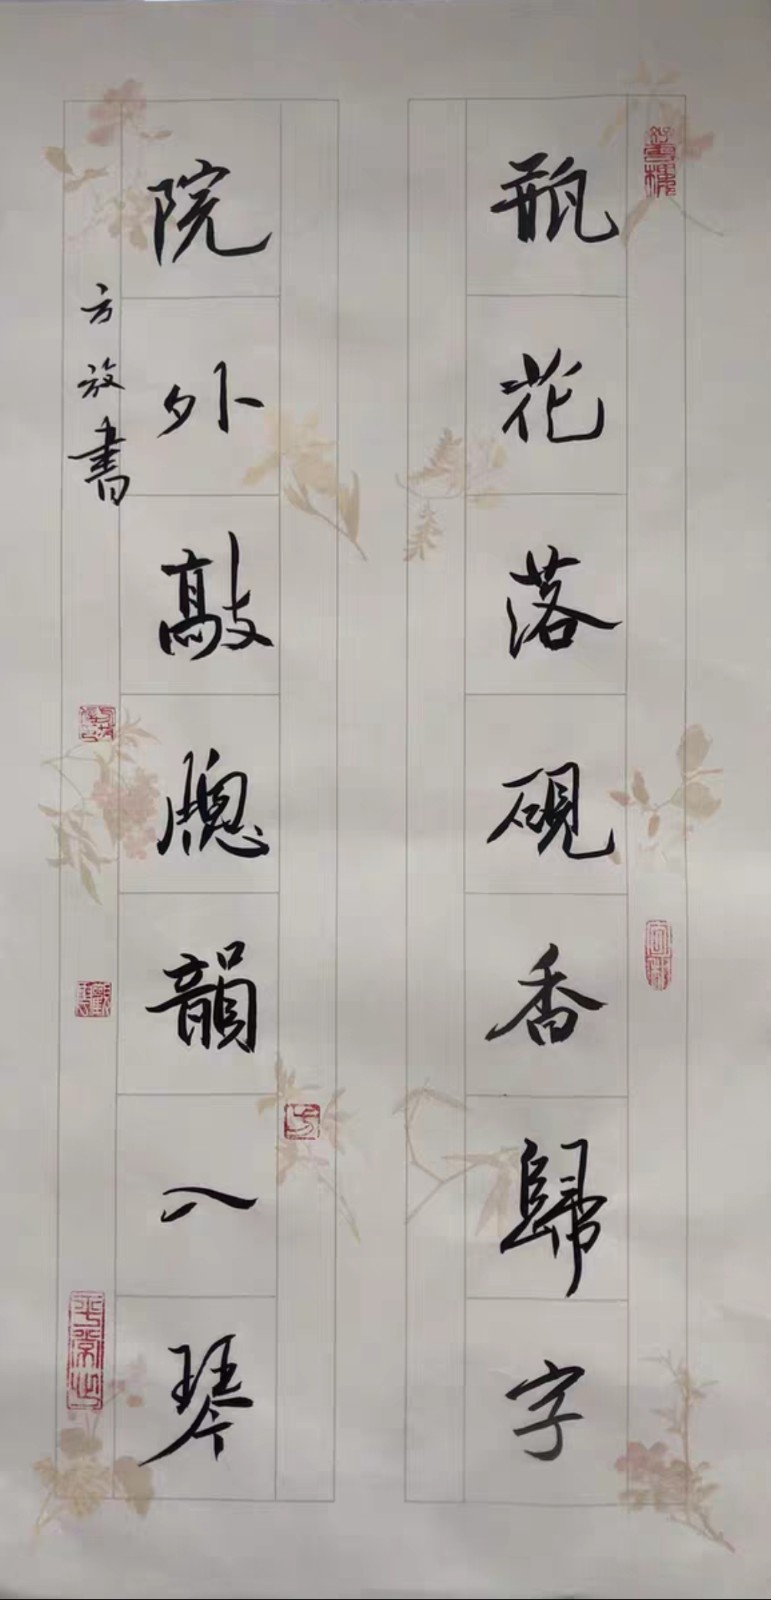 瓶花落硯香歸字
院外敲牕韻入琴
方放書
平常心